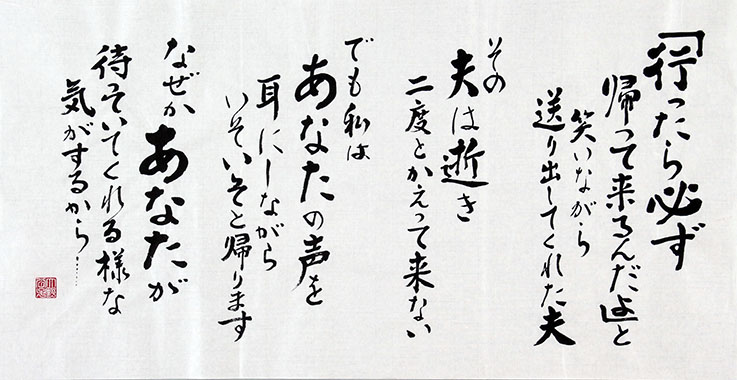 「行ったら必ず
帰って来るんだよ」と
笑いながら
送り出してくれた夫
その
夫は逝き
二度とかえって来ない
でも私は
あなたの声を
耳にしながら
いそいそと帰ります
なぜか
あなたが
待っていてくれる様な
気がするから……